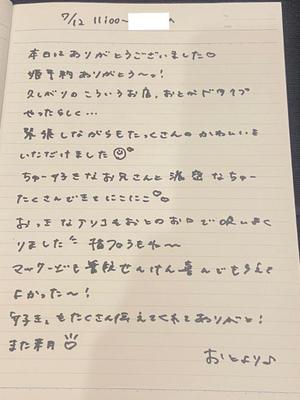 7/12 11:00〜 へ
本日はありがとうございました♡
婚予約ありがとう〜っ!
久しぶりのこういうお店、おとがドタイプ
やったらしく…
緊張しながらもたっくさんのかわいいを
いただけました
ちゅー好きなお兄さんと濃密なちゅー
たくさんできてにこにこ
おっきな もおとのお口で吸いまく
りました
マッサージも 喜んでもらえて
よかった〜!
「好き」もたくさん伝えてくれてありがと!
また来月
おとより♪